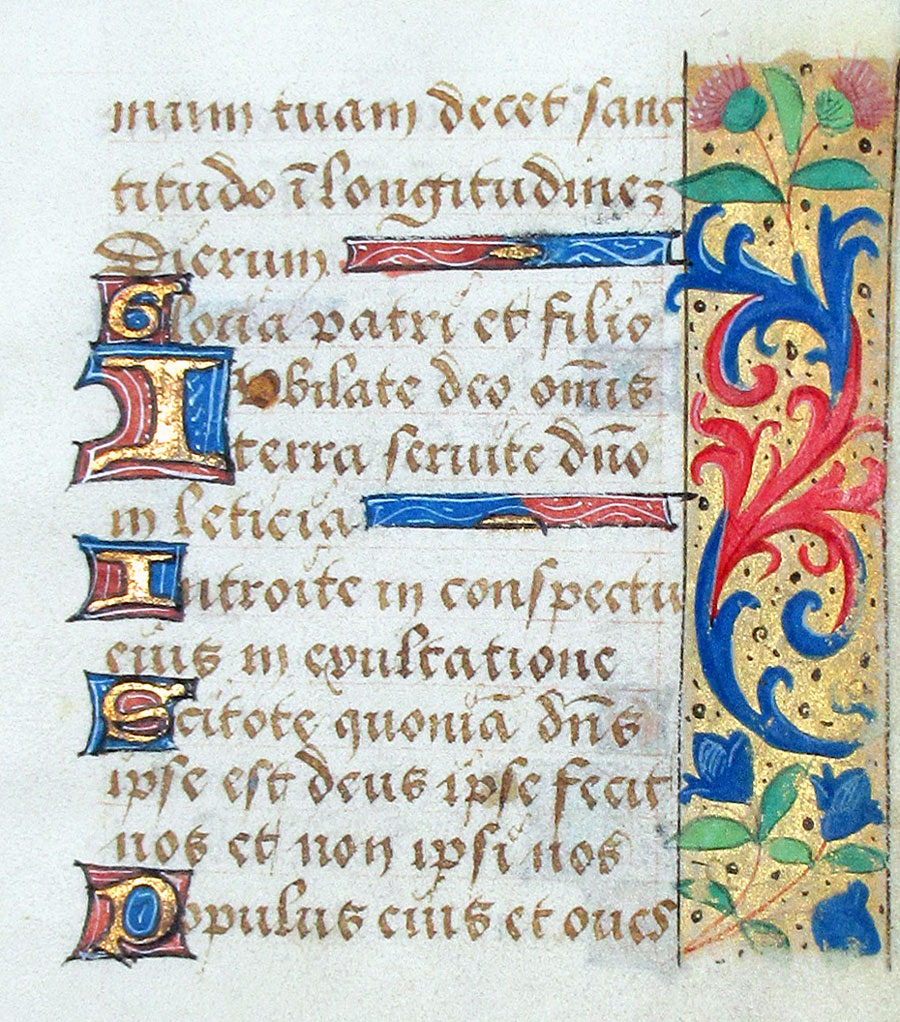 mum tuam decet sanc
titudo ī longitudinez
Dierum
Gloria patri et filio
Iubilate deo om̄is
terra seruite dn̄o
in leticia
Introite in conspectu
eius in exultatione
Scitote quoniā dn̄s
ipse est deus ipse fecit
nos et non ipsi nos
Populus eius et oues